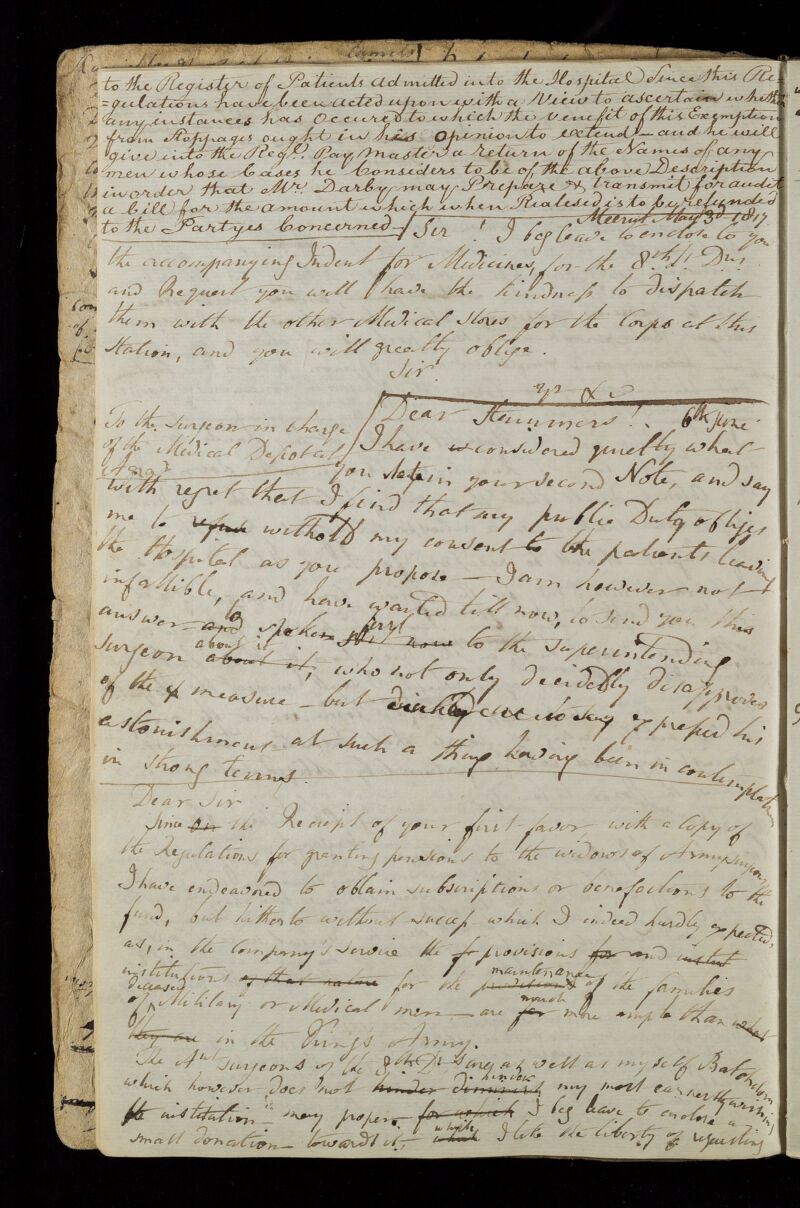 to the Register of Patients admitted into the Hospital Since this Re-
=gulations have been acted upon with a View to ascertain whether
any instances has occured to which the benefit of this Exemption
from Stoppages ought in his opinion to extend - and he will
give into the Regl. Pay Master a return of the Names of any
men whose Cases he Considers to be of the above Description
in order that Mr. Darby may Prepare & transmit for audit
a bill for the amount which when Realesed is to be refunded
to the Partyes Concerned
Meerut May 3d 1817
Sir! I beg leave to enclose to you
the accompanying Indent for Medicines, for the 8th Lt Drs
and Request you will have the kindness to dispatch
them with the other Medical Stores for the Corps at this
Station, and you will greatly oblige.
Sir
yrs &c
To the Surgeon in charge
of the Medical Depot at
Agra
Dear 6th June
I have considered quietly what
you state in your second Note, and say
with regret that I find that my public Duty obliges
me to refuse withold my consent to the patients leaving
the Hospital as you propose - I am however not
infallible, and have waited till now, to send you this
answer and to spoken first to the superintending
surgeon about it about it, who not only decidedly disapproves
of the measure - but expressed his
astonishment at such a thing having been in contemplation
in strong terms.
Dear Sir
Since on the Receipt of your first favor, with a Copy of
the Regulations for granting pensions to the widows of Army Surgeons
I have endeavored to obtain subscriptions or benefactions to the
fund, but hitherto without success which I indeed hardly expected,
as, in the Company's service the provisions for and
institutions of that nature for the maintenance of the families
of deceased Military or Medical men - are far much more ample than what
they are in the King's Army.
The Ast Surgeons of the 8th Drs are as well as myself Batchelors
which however does not hinder diminish hinder my most earnestly wishing
the institution may prosper for which I beg leave to enclose a
small donation towards it, which while I take the liberty of requesting